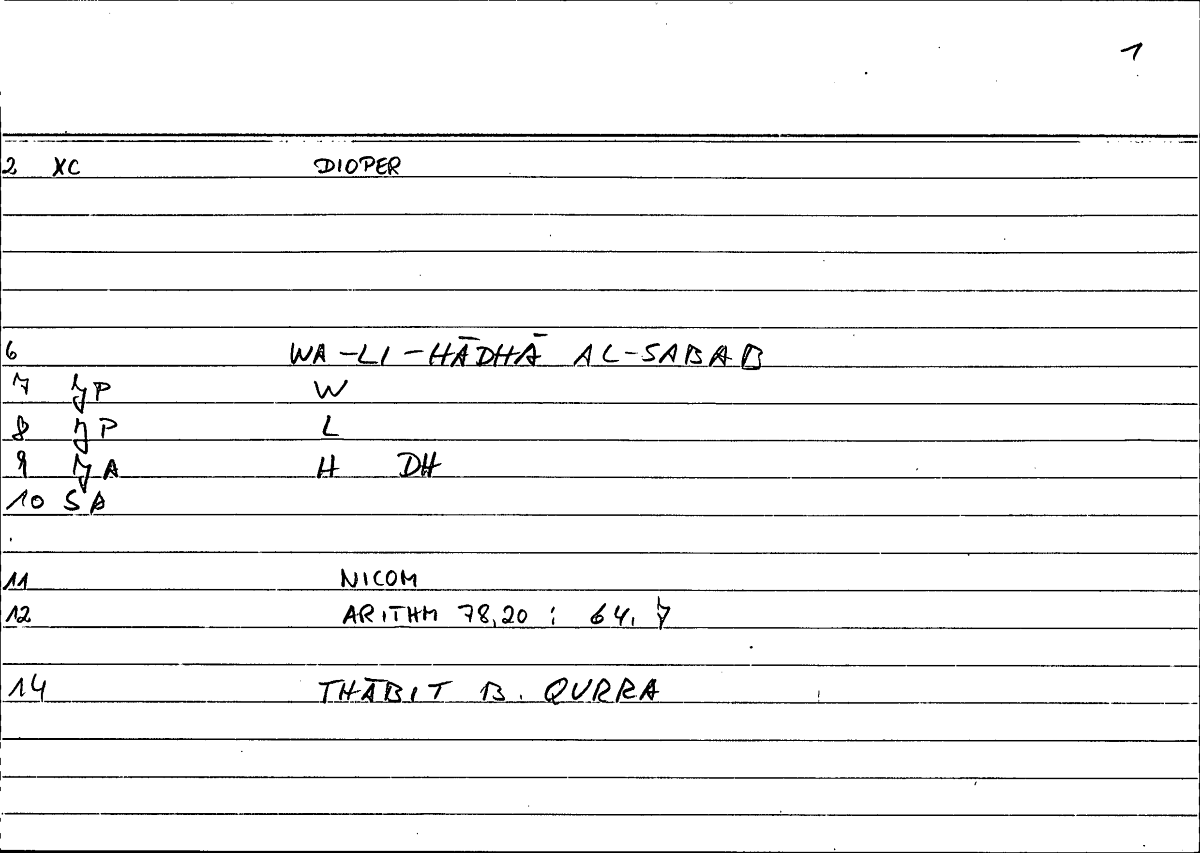 1
2 XC DIOPER
6 WA-LI-HĀDHĀ AL-SABAB
7 JP W
8 JP L
9 JA H DH
10 SA
11 NICOM
12 ARITHM 78,20 : 64,7
14 THĀBIT B. QURRA